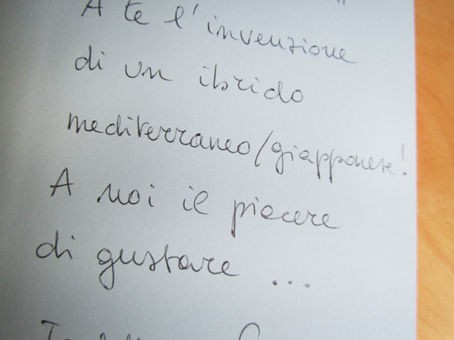 A te l'invenzione
di un ibrido
mediterraneo/giapponese!
A noi il piacere
di gustare ...